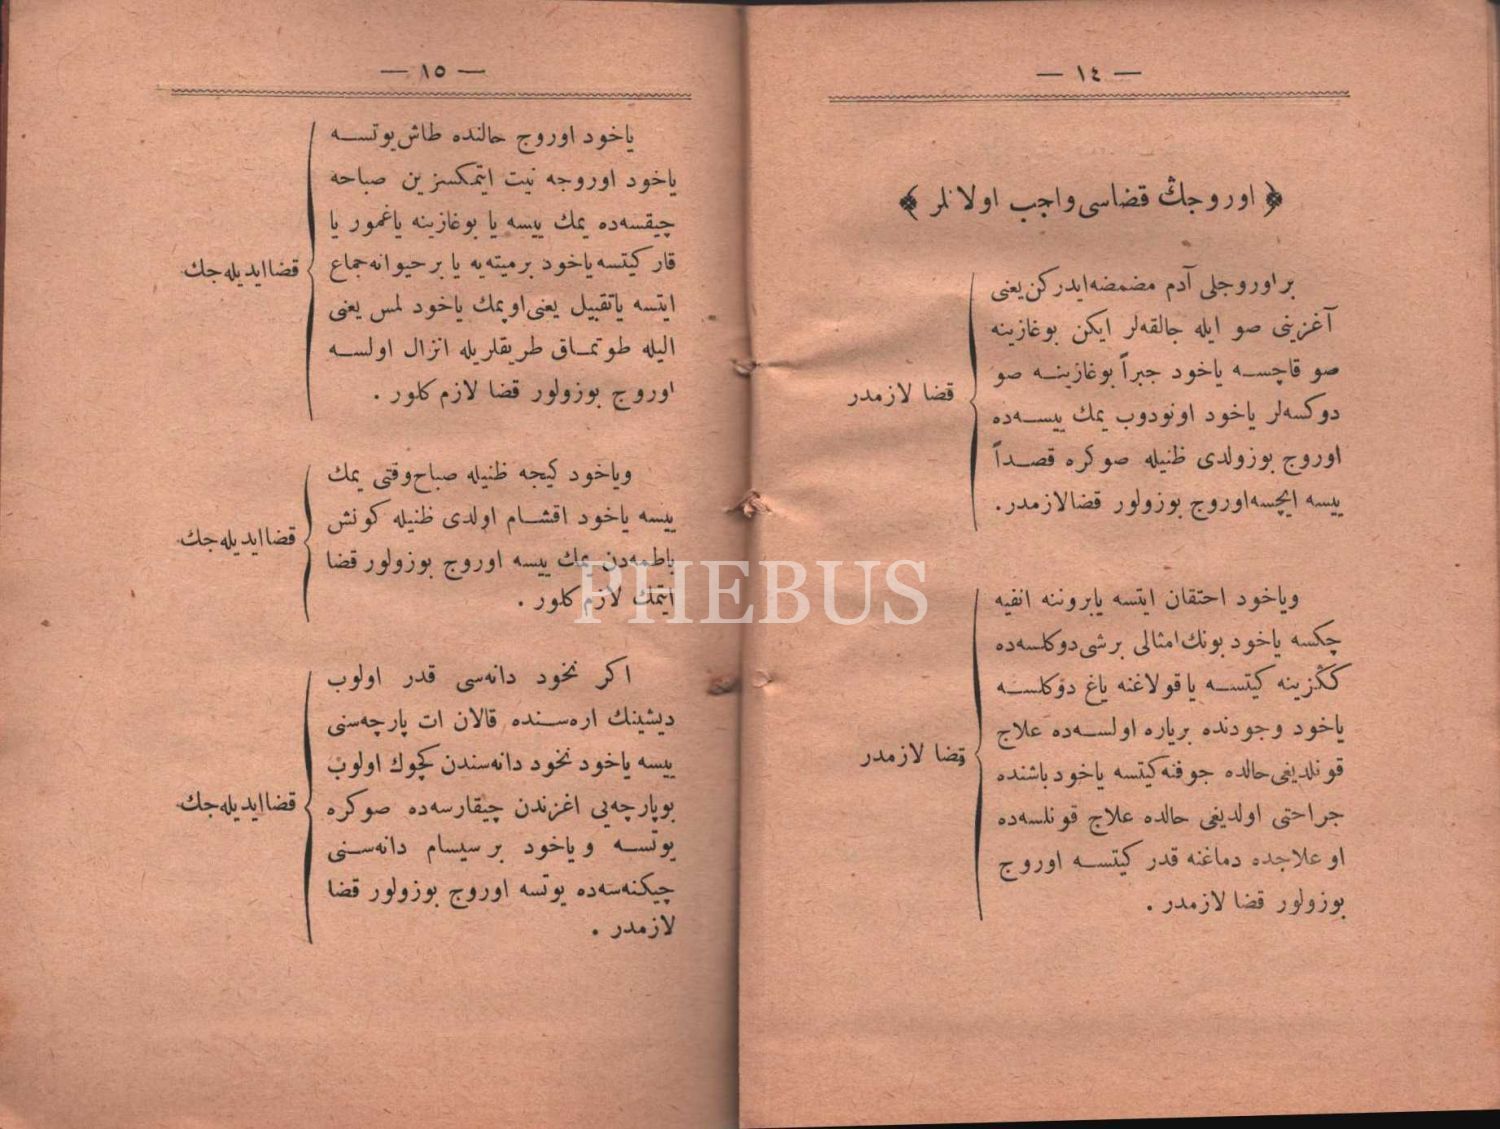 — ١٤ —
﴿ اوروجڭ قضاسى واجب اولانلر ﴾
بر اوروجلى آدم مضمضه ايدركن يعنى
آغزينى صو ايله جالقه‌لر ايكن بوغازينه
صو قاچسه ياخود جبراً بوغازينه صو
دوكسه‌لر ياخود اونودوب يمك ييسه‌ده
اوروج بوزولدى ظنيله صوكره قصداً
ييسه ايچسه اوروج بوزولور قضا لازمدر.
قضا لازمدر
وياخود احتقان ايتسه يا بروننه انفيه
چكسه ياخود بونك امثالى بر شى دوكلسه‌ده
كڭزينه كيتسه يا قولاغنه ياغ دوكلسه
ياخود وجودنده بر ياره اولسه‌ده علاج
قونلديغى حالده جوفنه كيتسه ياخود باشنده
جراحتى اولديغى حالده علاج قونلسه‌ده
او علاجده دماغنه قدر كيتسه اوروج
بوزولور قضا لازمدر .
قضا لازمدر
— ١٥ —
ياخود اوروج حالنده طاش يوتسه
ياخود اوروجه نيت ايتمكسزين صباحه
چيقسه‌ده يمك ييسه يا بوغازينه ياغمور يا
قار كيتسه ياخود بر ميته‌يه يا بر حيوانه جماع
ايتسه يا تقبيل يعنى اوپمك ياخود لمس يعنى
اليله طوتمـاق طريقلريله انزال اولسه
اوروج بوزولور قضا لازم كلور .
قضا ايديله‌جك
وياخود كيجه ظنيله صباح وقتى يمك
ييسه ياخود اقشـام اولدى ظنيله كونش
باطمه‌دن يمك ييسه اوروج بوزولور قضا
ايتمك لازم كلور .
قضا ايديله‌جك
اكر نخود دانه‌سى قدر اولوب
ديشينك اره‌سنده قالان ات پارچه‌سنى
ييسه ياخود نخود دانه‌سندن كچوك اولوب
بو پارچه‌يى اغزندن چيقارسه‌ده صوكره
يوتسه وياخود بر سيسام دانه‌سنى
چيكنه‌سه‌ده يوتسه اوروج بوزولور قضا
لازمدر .
قضا ايديله‌جك
PHEBUS